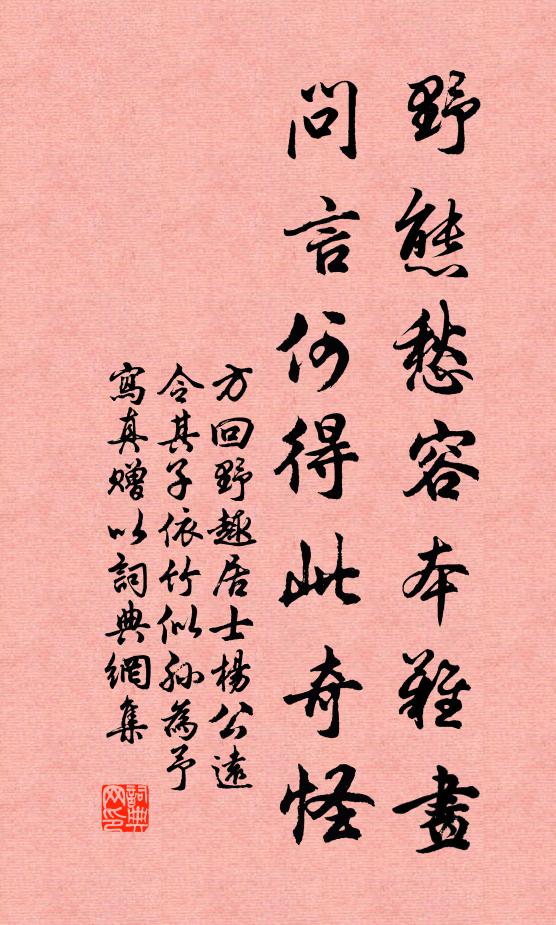 野態愁容本難畫
問言何得此奇怪
方回野趣居士楊公遠
令其子依竹似孫為予
寫真贈以詞典網集
詞典
网印